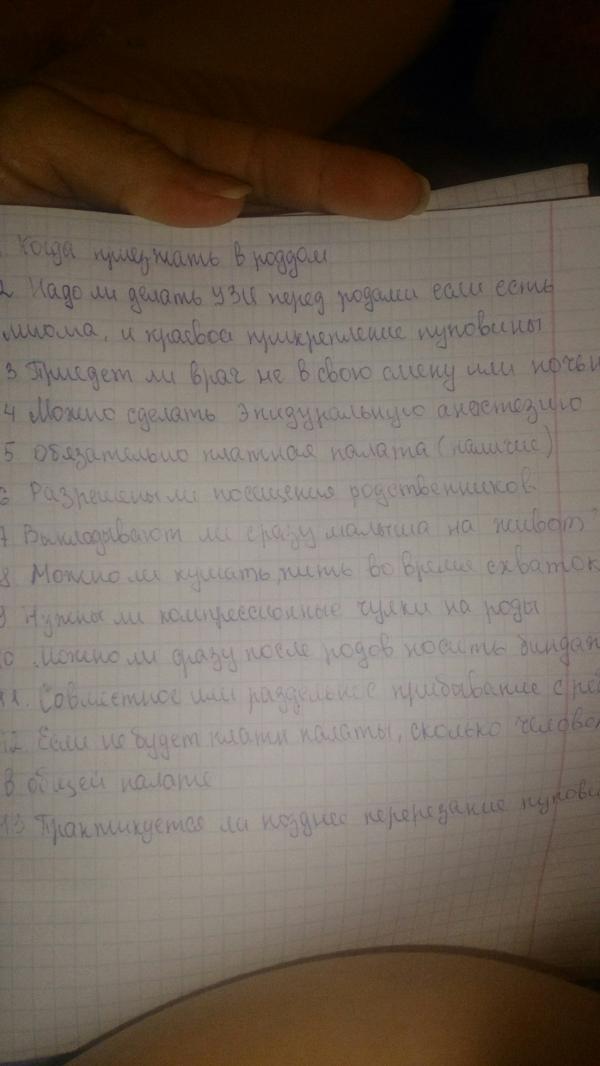 Когда приезжать в роддом
2 Надо ли делать УЗИ перед родами если есть
миома, и краевое прикрепление пуповины
3 Приедет ли врач не в свою смену или ночью
4 Можно сделать эпидуральную анастезию
5 Обязательно платная палата (наличие)
6 Разрешены ли посещения родственников
7 Выкладывают ли сразу малыша на живот?
8 Можно ли кушать, пить во время схваток
9 Нужны ли компрессионные чулки на роды
10 Можно ли сразу после родов носить бандаж
11. Совместное или раздельное прибывание с
12. Если не будет платн палаты, сколько человек
в общей палате
13 Практикуется ли позднее перерезание